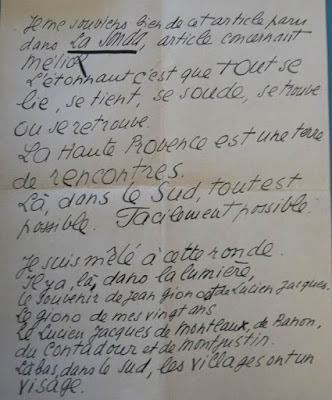 Je me souviens bien de cet article paru
dans La Sonda, article concernant
Mélio
L'étonnant c'est que tout se
lie, se tient, se soude, se trouve
ou se retrouve.
La Haute Provence est une terre
de rencontres.
Là, dans le Sud, tout est
possible. Facilement possible.
Je suis mêlé à cette ronde.
Il y a, là, dans la lumière,
le souvenir de Jean Giono et de Lucien Jacques.
Le Giono de mes vingt ans
Le Lucien Jacques de Montlaux, de Banon,
du Contadour et de Montjustin.
Là bas, dans le sud, les villages ont un
visage.